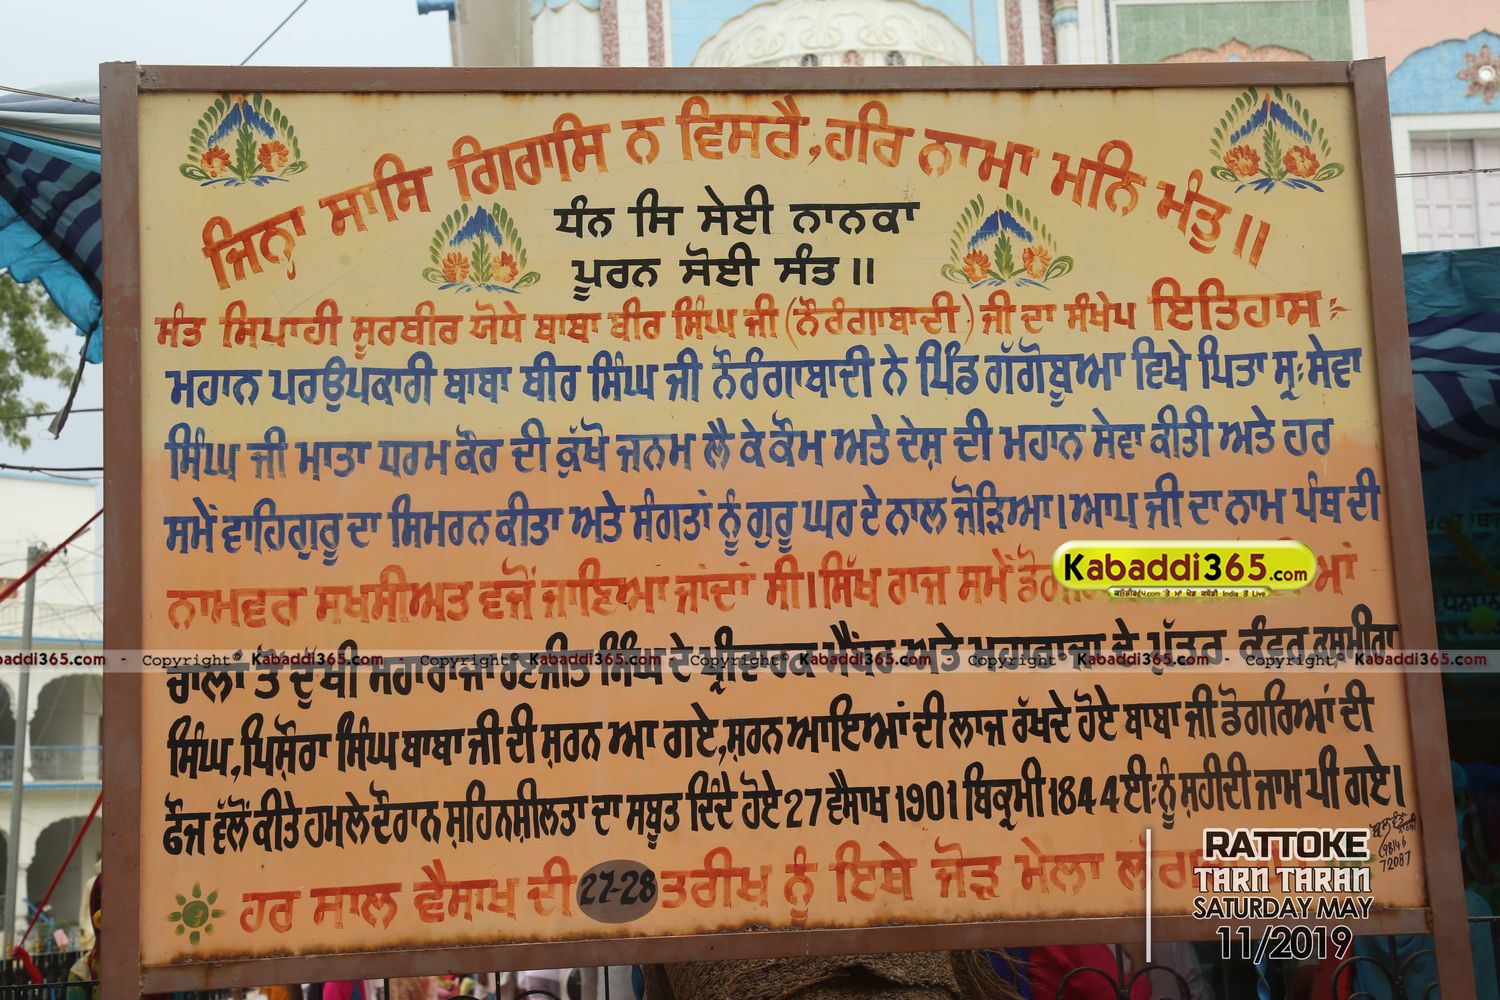 ਜਿਨਾ ਸਾਸਿ ਗਿਰਾਸਿ ਨ ਵਿਸਰੈ, ਹਰਿ ਨਾਮਾ ਮਨਿ ਮੰਤੁ॥
ਧੰਨ ਸਿ ਸੇਈ ਨਾਨਕਾ
ਪੂਰਨ ਸੋਈ ਸੰਤ॥
ਸੰਤ ਸਿਪਾਹੀ ਸੂਰਬੀਰ ਯੋਧੇ ਬਾਬਾ ਬੀਰ ਸਿੰਘ ਜੀ (ਨੌਰੰਗਾਬਾਦੀ) ਜੀ ਦਾ ਸੰਖੇਪ ਇਤਿਹਾਸ:-
ਮਹਾਨ ਪਰਉਪਕਾਰੀ ਬਾਬਾ ਬੀਰ ਸਿੰਘ ਜੀ ਨੌਰੰਗਾਬਾਦੀ ਨੇ ਪਿੰਡ ਗੱਗੋਬੂਆ ਵਿਖੇ ਪਿਤਾ ਸ੍ਰ: ਸੇਵਾ
ਸਿੰਘ ਜੀ ਮਾਤਾ ਧਰਮ ਕੌਰ ਦੀ ਕੁੱਖੋ ਜਨਮ ਲੈ ਕੇ ਕੌਮ ਅਤੇ ਦੇਸ਼ ਦੀ ਮਹਾਨ ਸੇਵਾ ਕੀਤੀ ਅਤੇ ਹਰ
ਸਮੇਂ ਵਾਹਿਗੁਰੂ ਦਾ ਸਿਮਰਨ ਕੀਤਾ ਅਤੇ ਸੰਗਤਾਂ ਨੂੰ ਗੁਰੂ ਘਰ ਦੇ ਨਾਲ ਜੋੜਿਆ। ਆਪ ਜੀ ਦਾ ਨਾਮ ਪੰਥ ਦੀ
ਨਾਮਵਰ ਸਖਸੀਅਤ ਵਜੋਂ ਜਾਣਿਆ ਜਾਂਦਾਂ ਸੀ। ਸਿੱਖ ਰਾਜ ਸਮੇਂ
ਚਾਲਾਂ ਤੋਂ ਦੁੱਖੀ ਮਹਾਰਾਜਾ ਰਣਜੀਤ ਸਿੰਘ ਦੇ ਪ੍ਰੀਵਾਰਕ ਮੈਂਬਰ ਅਤੇ ਮਹਾਰਾਜਾ ਦੇ ਪੁੱਤਰ ਕੰਵਰ ਕਸ਼ਮੀਰਾ
ਸਿੰਘ, ਪਿਸ਼ੌਰਾ ਸਿੰਘ ਬਾਬਾ ਜੀ ਦੀ ਸ਼ਰਨ ਆ ਗਏ, ਸ਼ਰਨ ਆਇਆਂ ਦੀ ਲਾਜ ਰੱਖਦੇ ਹੋਏ ਬਾਬਾ ਜੀ ਡੋਗਰਿਆਂ ਦੀ
ਫੌਜ ਵੱਲੋਂ ਕੀਤੇ ਹਮਲੇ ਦੌਰਾਨ ਸ਼ਹਿਨਸ਼ੀਲਤਾ ਦਾ ਸਬੂਤ ਦਿੰਦੇ ਹੋਏ 27 ਵੈਸਾਖ 1901 ਬਿਕ੍ਰਮੀ 1844 ਈ: ਨੂੰ ਸ਼ਹੀਦੀ ਜਾਮ ਪੀ ਗਏ।
ਹਰ ਸਾਲ ਵੈਸਾਖ ਦੀ 27-28 ਤਰੀਖ ਨੂੰ ਇਥੇ ਜੋੜ ਮੇਲਾ
72087
Kabaddi365.com
Kabaddi365.com - Copyright© Kabaddi365.com - Copyright© Kabaddi365.com - Copyright© Kabaddi365.com - Copyright© Kabaddi365.com - Copyright© Kabaddi365.com
RATTOKE
TARN TARAN
SATURDAY MAY
11/2019